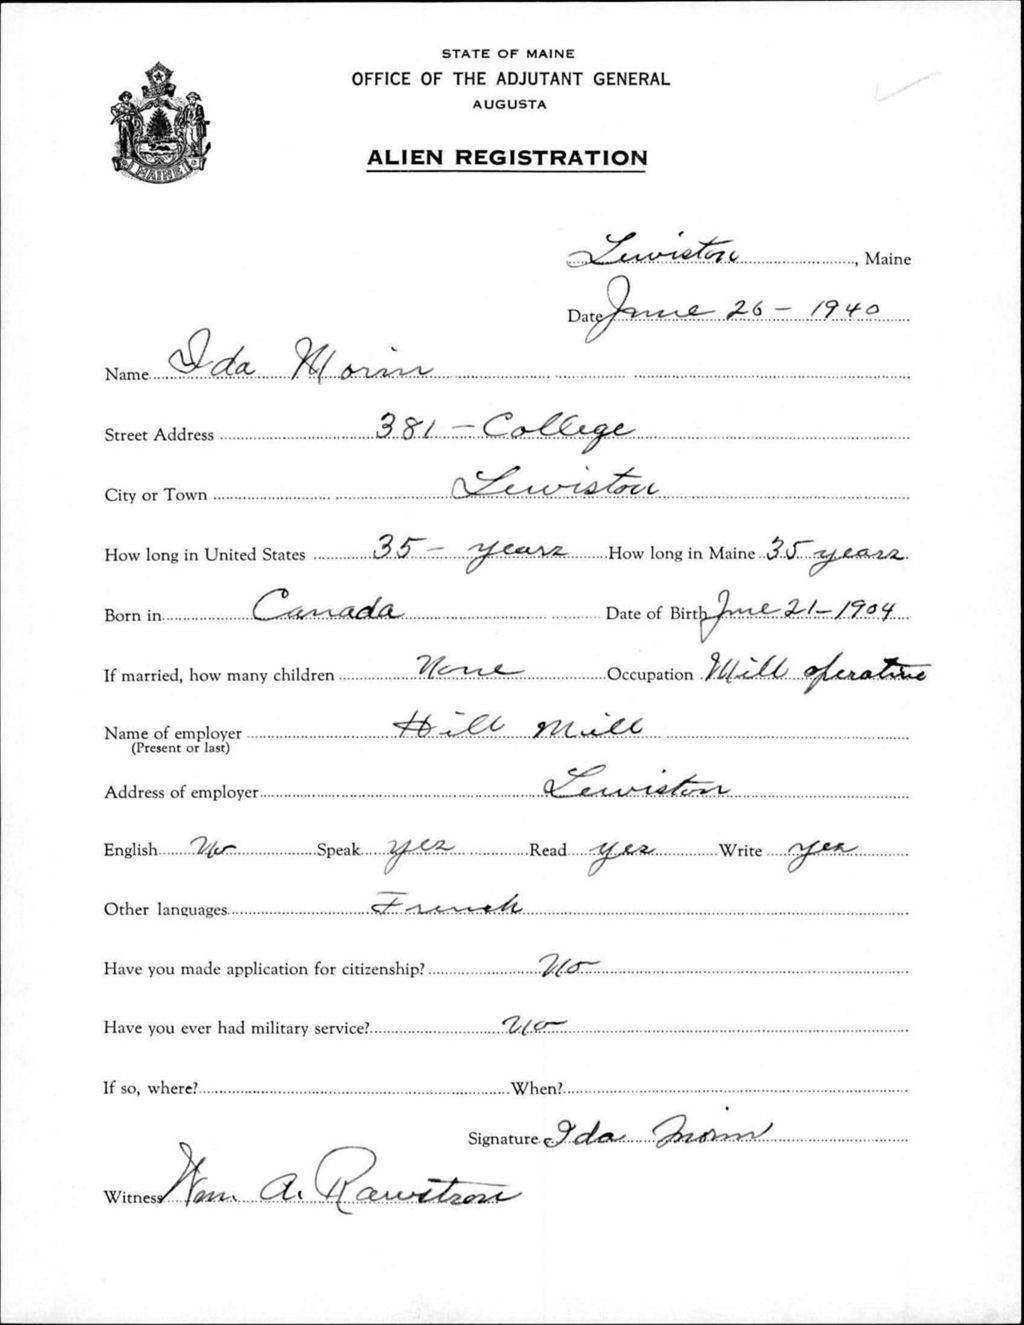 STATE OF MAINE
OFFICE OF THE ADJUTANT GENERAL
AUGUSTA
ALIEN REGISTRATION
MAINE
Lewiston, Maine
Date June 26 - 1940
Name Ida Morin
Street Address 381 - College
City or Town Lewiston
How long in United States 35 - years How long in Maine 35 years
Born in Canada Date of Birth June 21 - 1904
If married, how many children None Occupation Mill operative
Name of employer Hill Mill
(Present or last)
Address of employer Lewiston
English No Speak yes Read yes Write yes
Other languages French
Have you made application for citizenship? No
Have you ever had military service? No
If so, where? When?
Signature Ida Morin
Witness Wm. A. Rawstron